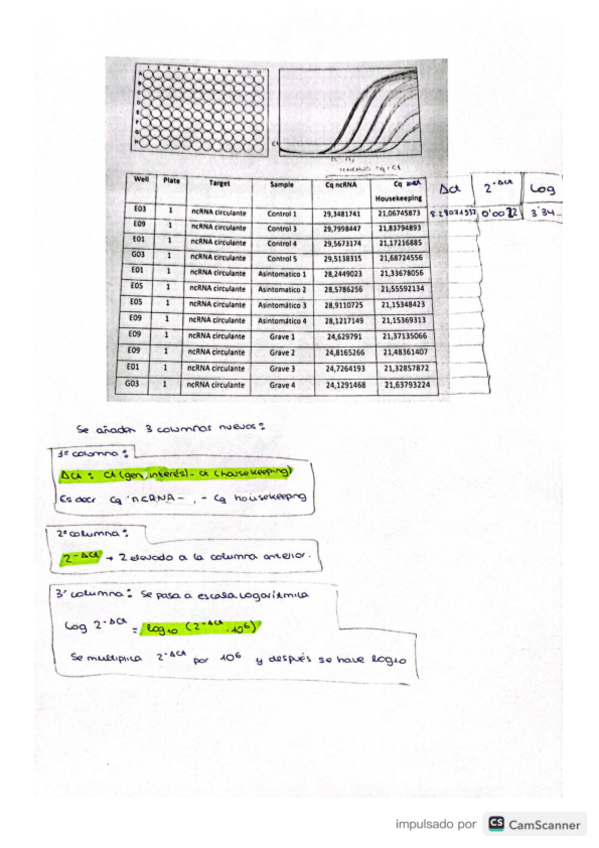 1 2 3 4 5 6 7 8 9 10 11 12
A
B
C
D
E
F
G
H
Ct
Well Plate Target Sample Cq ncRNA Cq Housekeeping Δct 2^-Δct Log
E03 1 ncRNA circulante Control 1 29,3481741 21,06745873 0'00 3'34...
E09 1 ncRNA circulante Control 3 29,7998447 21,83794893
E01 1 ncRNA circulante Control 4 29,5673174 21,17216885
G03 1 ncRNA circulante Control 5 29,5138315 21,68724556
E01 1 ncRNA circulante Asintomatico 1 28,2449023 21,33678056
E05 1 ncRNA circulante Asintomatico 2 28,5786256 21,55592134
E05 1 ncRNA circulante Asintomático 3 28,9110725 21,15348423
E09 1 ncRNA circulante Asintomático 4 28,1217149 21,15369313
E09 1 ncRNA circulante Grave 1 24,629791 21,37135066
E09 1 ncRNA circulante Grave 2 24,8165266 21,48361407
E01 1 ncRNA circulante Grave 3 24,7264193 21,32857872
G03 1 ncRNA circulante Grave 4 24,1291468 21,63793224
Se añaden 3 columnas nuevas:
1ª columna:
Δct = ct (gen interés) - ct (housekeeping)
Es decir Cq ncRNA - Cq housekeeping
2ª columna:
2^-Δct → 2 elevado a la columna anterior.
3ª columna: Se pasa a escala logarítmica
Log 2^-Δct = log10 (2^-Δct · 10^6)
Se multiplica 2^-Δct por 10^6 y después se hace log10
impulsado por CS CamScanner